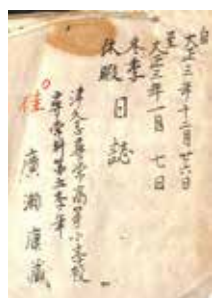 自大正三年十二月廿六日
至大正三年一月七日
冬季
休暇
日誌
尋常高等小学校
尋常科第五学年
佳
廣瀬康蔵